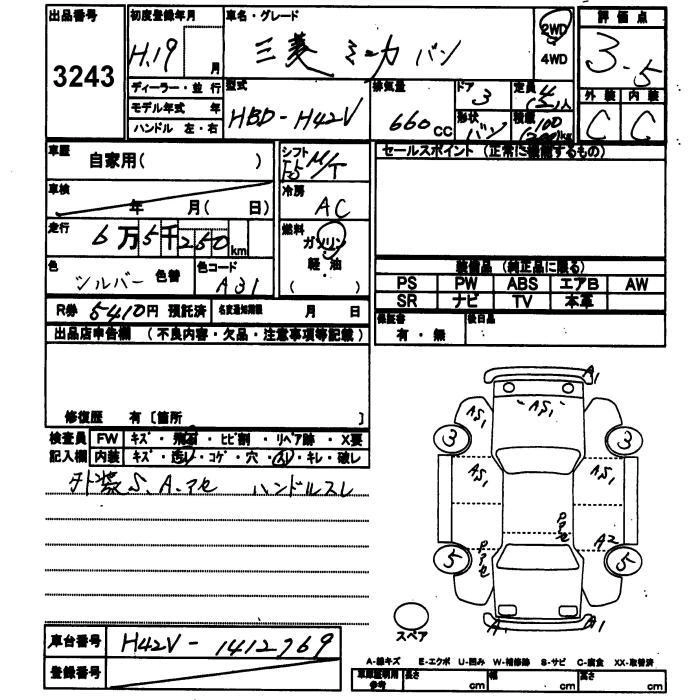 出品番号
3243
初度登録年月
H.19 月
ディーラー・並行
モデル年式 年
ハンドル 左・右
車名・グレード
三菱 ミニカ バン
2WD
4WD
評価点
3.5
外装 内装
C C
型式
HBD-H42V
排気量
660 CC
ドア
3
形状
バン
定員
積載
車歴
自家用( )
車検
年 月( 日)
走行
6万5千250km
色
シルバー 色替
色コード
A31
シフト
F5 M/T
冷房
AC
燃料
ガソリン
軽・油
( )
R券 5410円 預託済
名変通知期限 月 日
セールスポイント (正常に機能するもの)
装備品 (純正品に限る)
PS PW ABS エアB AW
SR ナビ TV 本革
保証書
有・無
後日品
出品店申告欄 (不良内容・欠品・注意事項等記載)
修復歴 有 [箇所 ]
検査員
記入欄
FW キズ・飛石・ヒビ割・リペア跡・X要
内装 キズ・汚レ・コゲ・穴・スレ・キレ・破レ
外装S.A.マセ ハンドルスレ
A1
AS1 AS1 AS1
3 3
AS1 AS1
A2
5 5
A1 A1
スペア
車台番号 H42V-1412769
登録番号
A-線キズ E-エクボ U-凹み W-補修跡 S-サビ C-腐食 XX-取替済
車庫証明用
参考
長さ cm 幅 cm 高さ cm